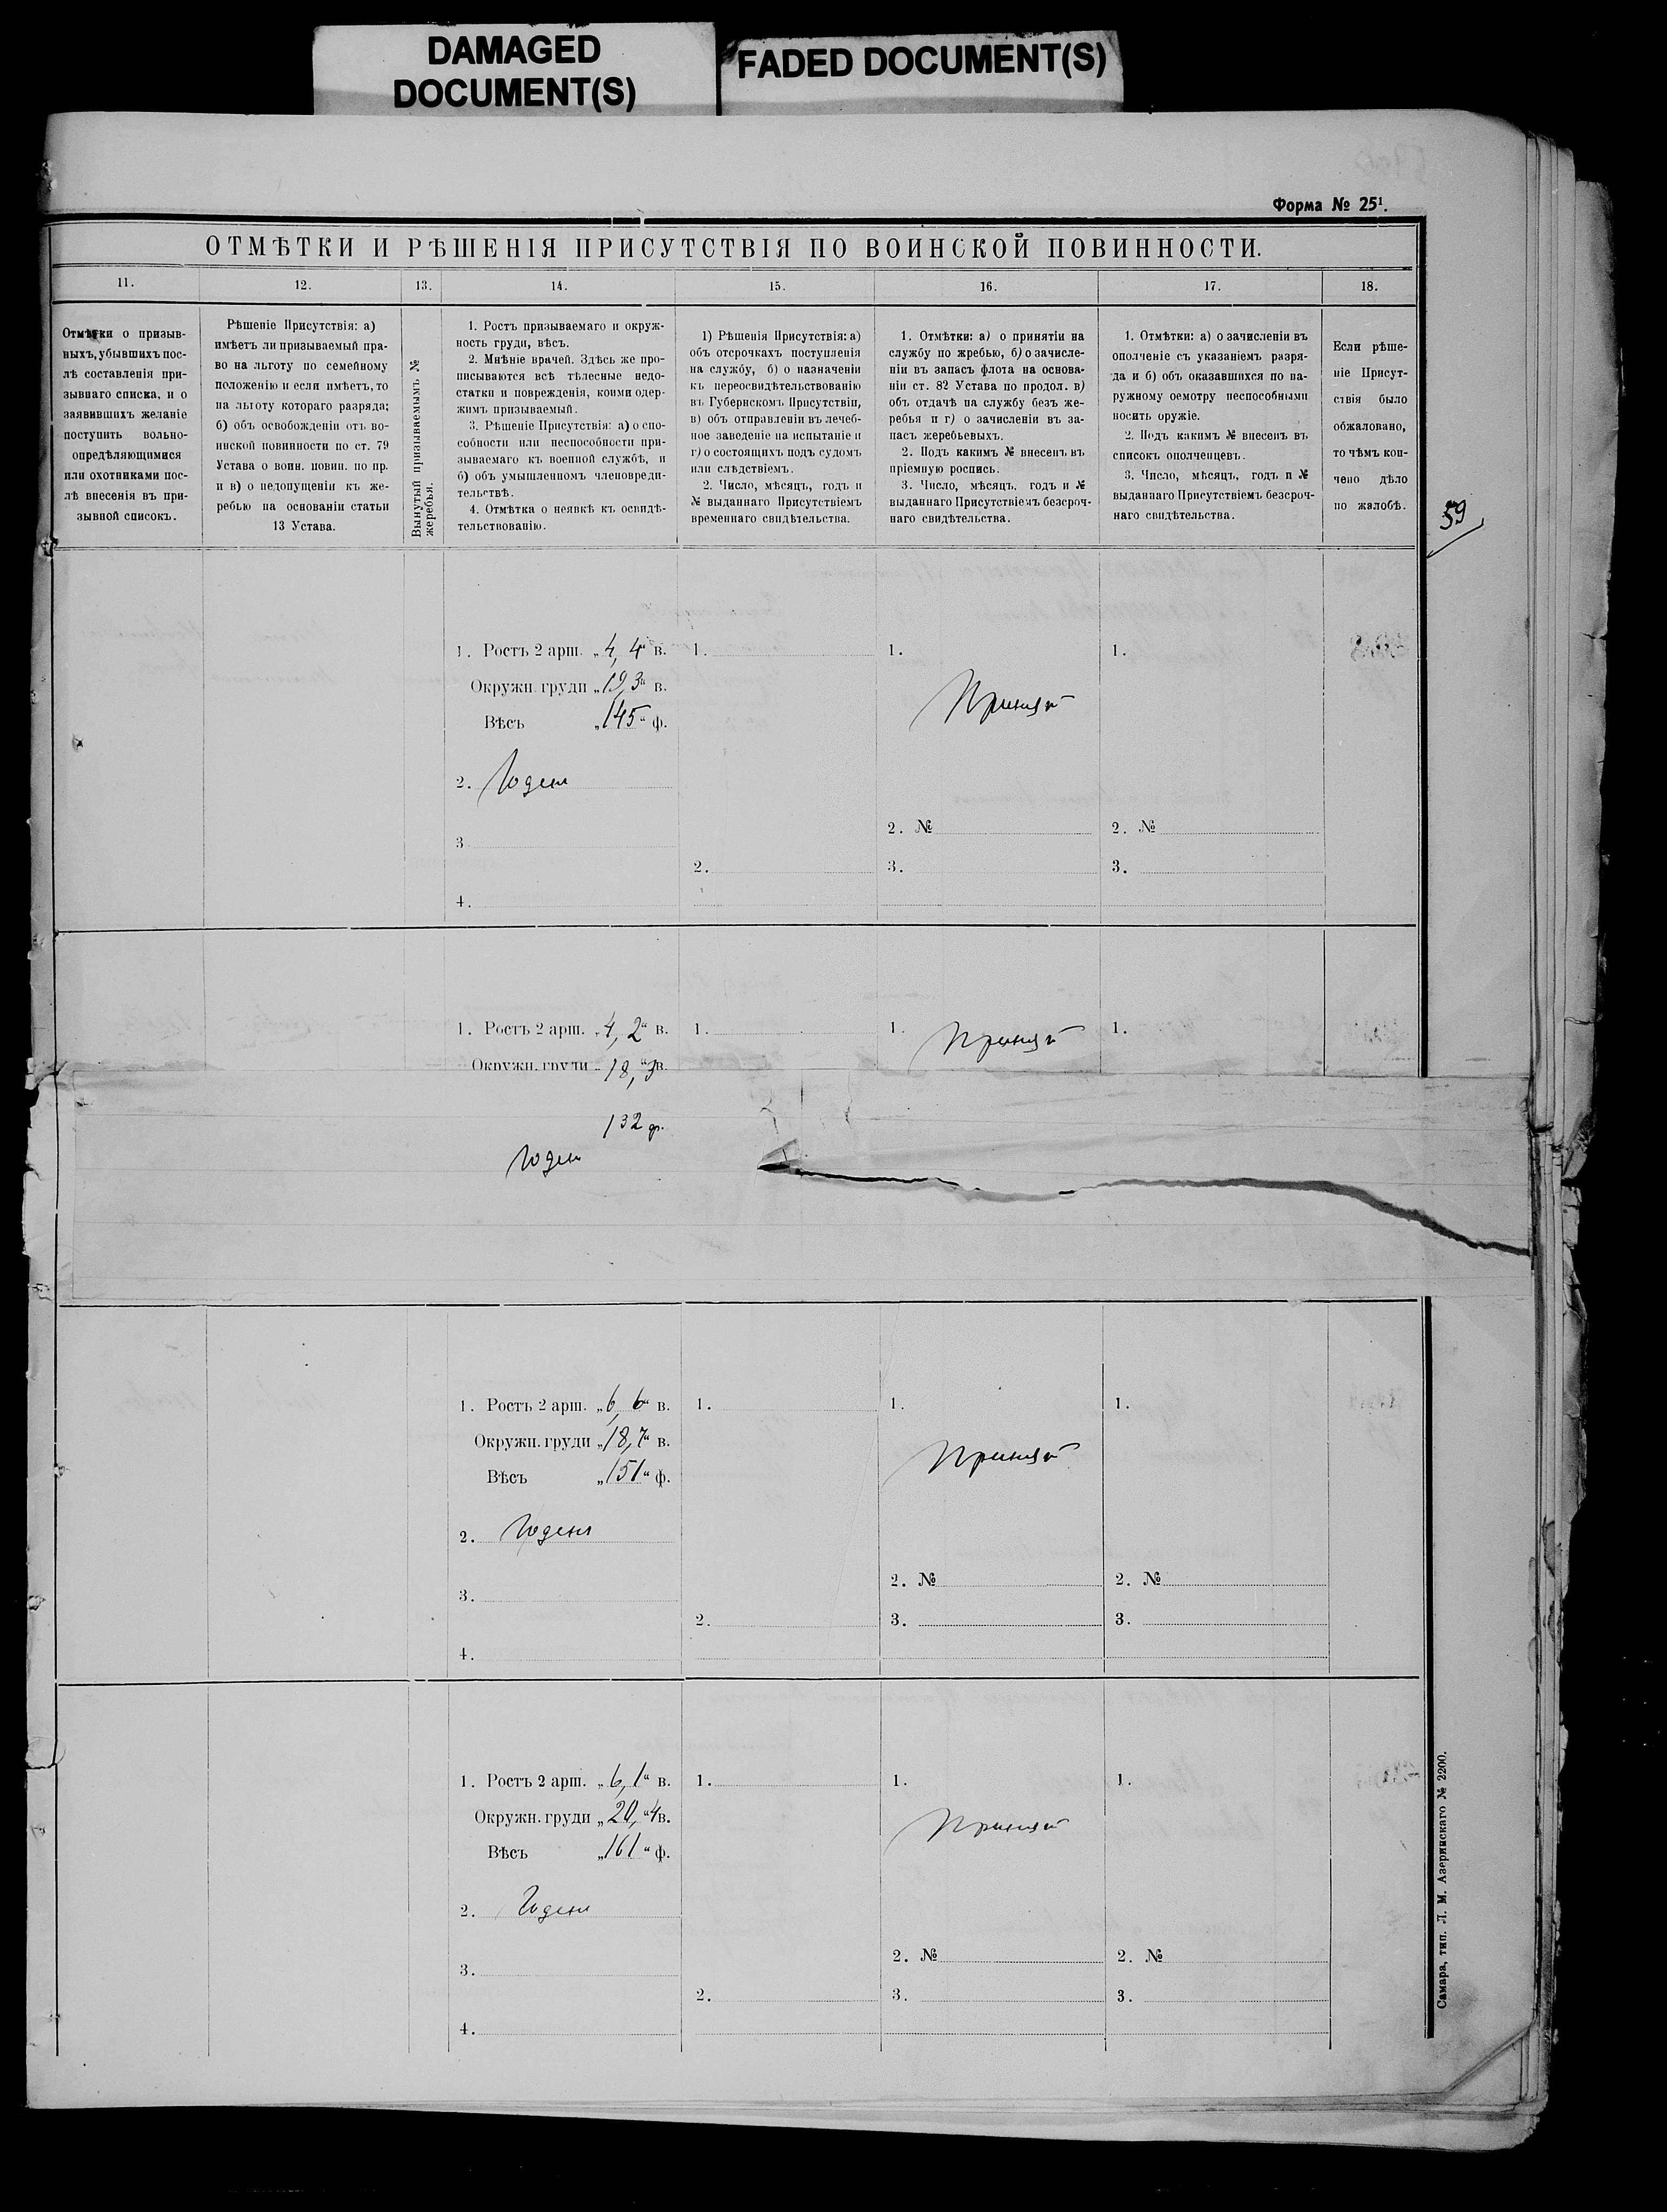 DAMAGED
DOCUMENT(S)
FADED DOCUMENT(S)
Форма № 25¹.
ОТМѢТКИ И РѢШЕНІЯ ПРИСУТСТВІЯ ПО ВОИНСКОЙ ПОВИННОСТИ.
11. 12. 13. 14. 15. 16. 17. 18.
Отмѣтки о призыв-
ныхъ, убывшихъ пос-
лѣ составленія при-
зывнаго списка, и о
заявившихъ желаніе
поступить вольно-
опредѣляющимися
или охотниками пос-
лѣ внесенія въ при-
зывной списокъ.
Рѣшеніе Присутствія: а)
имѣетъ ли призываемый пра-
во на льготу по семейному
положенію и если имѣетъ, то
на льготу котораго разряда;
б) объ освобожденіи отъ во-
инской повинности по ст. 79
Устава о воин. повин. по пр.
и в) о недопущеніи къ же-
ребью на основаніи статьи
13 Устава.
Вынутый призываемымъ №
жеребья.
1. Ростъ призываемаго и окруж-
ность груди, вѣсъ.
2. Мнѣніе врачей. Здѣсь же про-
писываются всѣ тѣлесные недо-
статки и поврежденія, коими одер-
жимъ призываемый.
3. Рѣшеніе Присутствія: а) о спо-
собности или неспособности при-
зываемаго къ военной службѣ, и
б) объ умышленномъ членовреди-
тельствѣ.
4. Отмѣтка о неявкѣ къ освидѣ-
тельствованію.
1) Рѣшенія Присутствія: а)
объ отсрочкахъ поступленія
на службу, б) о назначеніи
къ переосвидѣтельствованію
въ Губернскомъ Присутствіи,
в) объ отправленіи въ лечеб-
ное заведеніе на испытаніе и
г) о состоящихъ подъ судомъ
или слѣдствіемъ.
2. Число, мѣсяцъ, годъ и
№ выданнаго Присутствіемъ
временнаго свидѣтельства.
1. Отмѣтки: а) о принятіи на
службу по жребью, б) о зачисле-
ніи въ запасъ флота на основа-
ніи ст. 82 Устава по продол. в)
объ отдачѣ на службу безъ же-
ребья и г) о зачисленіи въ за-
пасъ жеребьевыхъ.
2. Подъ какимъ № внесенъ въ
пріемную роспись.
3. Число, мѣсяцъ, годъ и №
выданнаго Присутствіемъ безсроч-
наго свидѣтельства.
1. Отмѣтки: а) о зачисленіи въ
ополченіе съ указаніемъ разря-
да и б) объ оказавшихся по на-
ружному осмотру неспособными
носить оружіе.
2. Подъ какимъ № внесенъ въ
списокъ ополченцевъ.
3. Число, мѣсяцъ, годъ и №
выданнаго Присутствіемъ безсроч-
наго свидѣтельства.
Если рѣше-
ніе Присут-
ствія было
обжаловано,
то чѣмъ кон-
чено дѣло
по жалобѣ.
59
1. Ростъ 2 арш. „4, 4“ в. 1. 1. 1.
Окружн. груди „19,3“ в.
Принят
Вѣсъ „145“ ф.
2. Годен
2. № 2. №
3
2. 3. 3.
4.
1. Ростъ 2 арш. „4, 2“ в. 1. 1. Принят 1.
Окружн. груди „18,“3в.
132 ф.
Годен
1. Ростъ 2 арш. „6, 6“ в. 1. 1. 1.
Окружн. груди „18,7“ в.
Принят
Вѣсъ „151“ ф.
2. Годен
2. № 2. №
3.
2. 3. 3.
4.
1. Ростъ 2 арш. „6,1“ в. 1. 1. 1.
Окружн. груди „20,“4в.
Принят
Вѣсъ „161“ ф.
2. Годен
2. № 2. №
3.
2. 3. 3.
4.
Самара, тип. Л. М. Азеринскаго № 2200.